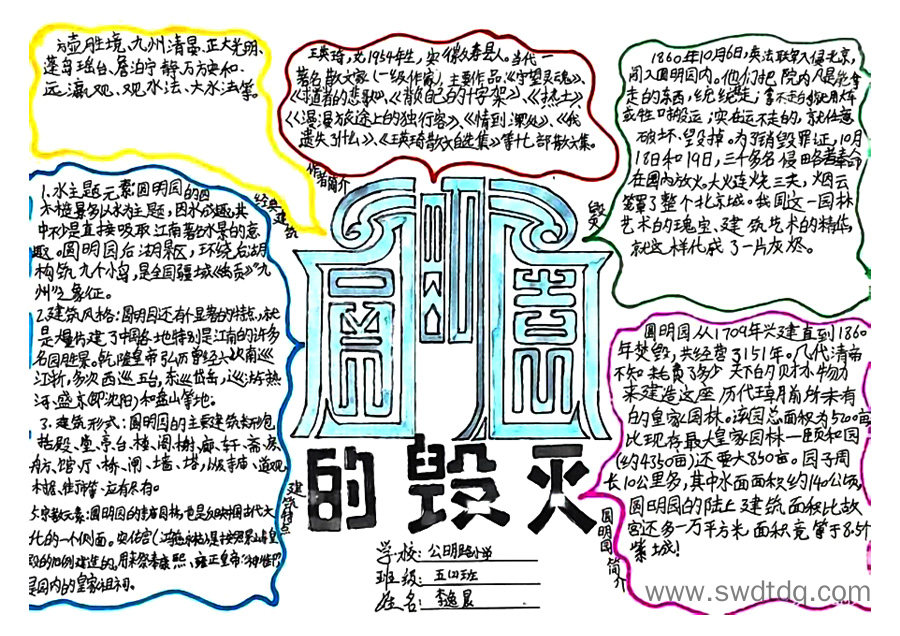 方壶胜境、九州清晏、正大光明、
蓬岛瑶台、澹泊宁静、万方安和、
远瀛观、观水法、大水法等。
经典建筑
王英琦,女,1954年生,安徽寿县人。当代一
著名散文家(一级作家),主要作品《守望灵魂》、
《求道者的悲歌》、《背负自己的十字架》、《热土》
《漫漫旅途上的独行客》、《情到深处》、《我
遗失了什么》、《王英琦散文自选集》等十七部散文集。
作者简介
1860年10月6日,英法联军入侵北京,
闯入圆明园内。他们把院内凡是能拿
走的东西,统统掠走;拿不走的就用大车
或牲口搬运;实在运不走的,就任意
破坏、毁掉。为了销毁罪证,10月
18日和19日,三千多名侵略者奉命
在园内放火。大火连烧三天,烟云
笼罩了整个北京城。我国这一园林
艺术的瑰宝、建筑艺术的精华,
就这样化成了一片灰烬。
毁灭
1.水主题元素:圆明园的园
林造景多以水为主题,因水成趣,其
中不少是直接吸取江南著名水景的意
趣。圆明园后湖景区,环绕后湖
构筑九个小岛,是全国疆域《禹贡》“九
州”之象征。
2.建筑风格:圆明园还有个显著的特点,就
是大量仿建了中国各地特别是江南的许多
名园胜景。乾隆皇帝弘历曾经六次南巡
江浙,多次西巡五台,东巡岱岳,巡游热
河、盛京(即沈阳)和盘山等地。
3.建筑形式:圆明园的主要建筑类型包
括殿、堂、亭、台、楼、阁、榭、廊、轩、斋、房、
舫、馆、厅、桥、闸、墙、塔,以及寺庙、道观、
村居、街市等,应有尽有。
化的一个侧面。
是园内的皇家祖祠。
建筑特点
圆明园
的毁灭
圆明园从1709年兴建直到1860
年焚毁,共经营了151年。几代清帝
不知耗费了多少天下的财力物力
来建造这座历代王朝前所未有
的皇家园林。该园总面积为5200亩
比现存最大皇家园林—颐和园
(约4350亩)还要大850亩。园子周
长10公里多,其中水面面积约140公顷,
圆明园的陆上建筑面积比故
宫还多一万平方米,面积竟等于8.5个
紫禁城!
圆明园简介
学校:公明路小学
班级:五四班
姓名:李逸晨
www.swdtdq.com